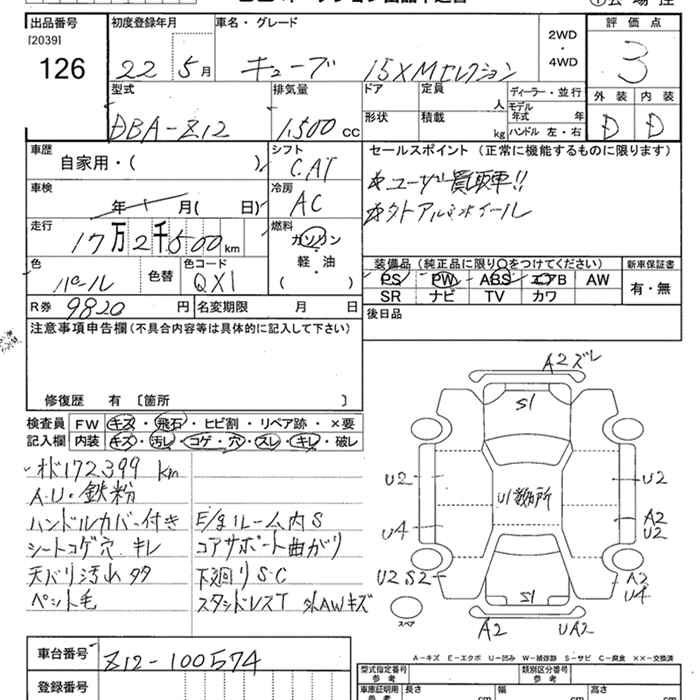 出品番号 初度登録年月 車名・グレード 評価点
[2039]
126
22 5月 キューブ 15XMセレクション
2WD
・
4WD
3
型式 排気量 ドア 定員 人 ディーラー・並行 外装 内装
DBA-Z12 1,500cc 形状 積載 kg モデル年式 年 D D
ハンドル 左・右
車歴 シフト セールスポイント (正常に機能するものに限ります)
自家用・( ) CAT
車検 冷房
年 月( 日) AC
走行 燃料
17万2千500km ガソリン
軽・油
( )
色 パール 色替 色コード QX1
装備品 (純正品に限り○をつけてください) 新車保証書
PS PW ABS エアB AW 有・無
SR ナビ TV カワ
R券 9820円 名変期限 月 日 後日品
注意事項申告欄(不具合内容等は具体的に記入して下さい)
修復歴 有 〔箇所 〕
検査員 FW キズ・飛石・ヒビ割・リペア跡・×要
記入欄 内装 キズ・汚レ・コゲ・穴・スレ・キレ・破レ
172,399 km
A.U・鉄粉
ハンドルカバー付き E/gルーム内S
シートコゲ穴 キレ コアサポート曲がり
天バリ汚れ タタ 下廻りS・C
ペット毛 スタッドレスT 外AWキズ
A2ズレ
S1
U2 U2
U4 A2
U2
U2 S2 A2
U4
S1
スペア A2 UA2
A-キズ E-エクボ U-凹み W-補修跡 S-サビ C-腐食 ××-交換済
車台番号 Z12-100574
登録番号
型式指定番号 類別区分番号
参考 参考
車庫証明用 長さ 幅 高さ
参考 cm cm cm